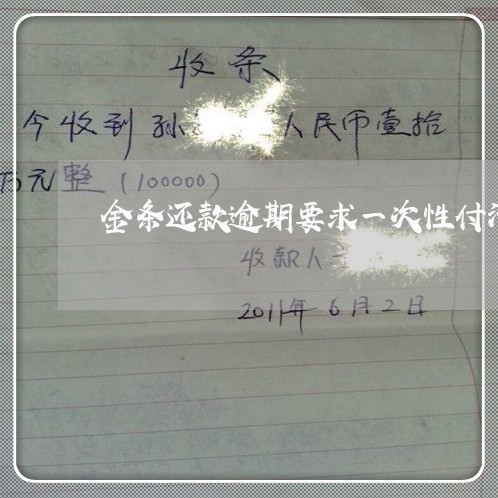 收条
今收到孙 人民币壹拾
万元整(100000)
金条还款逾期要求一次性付
收款人
2011年6月2日